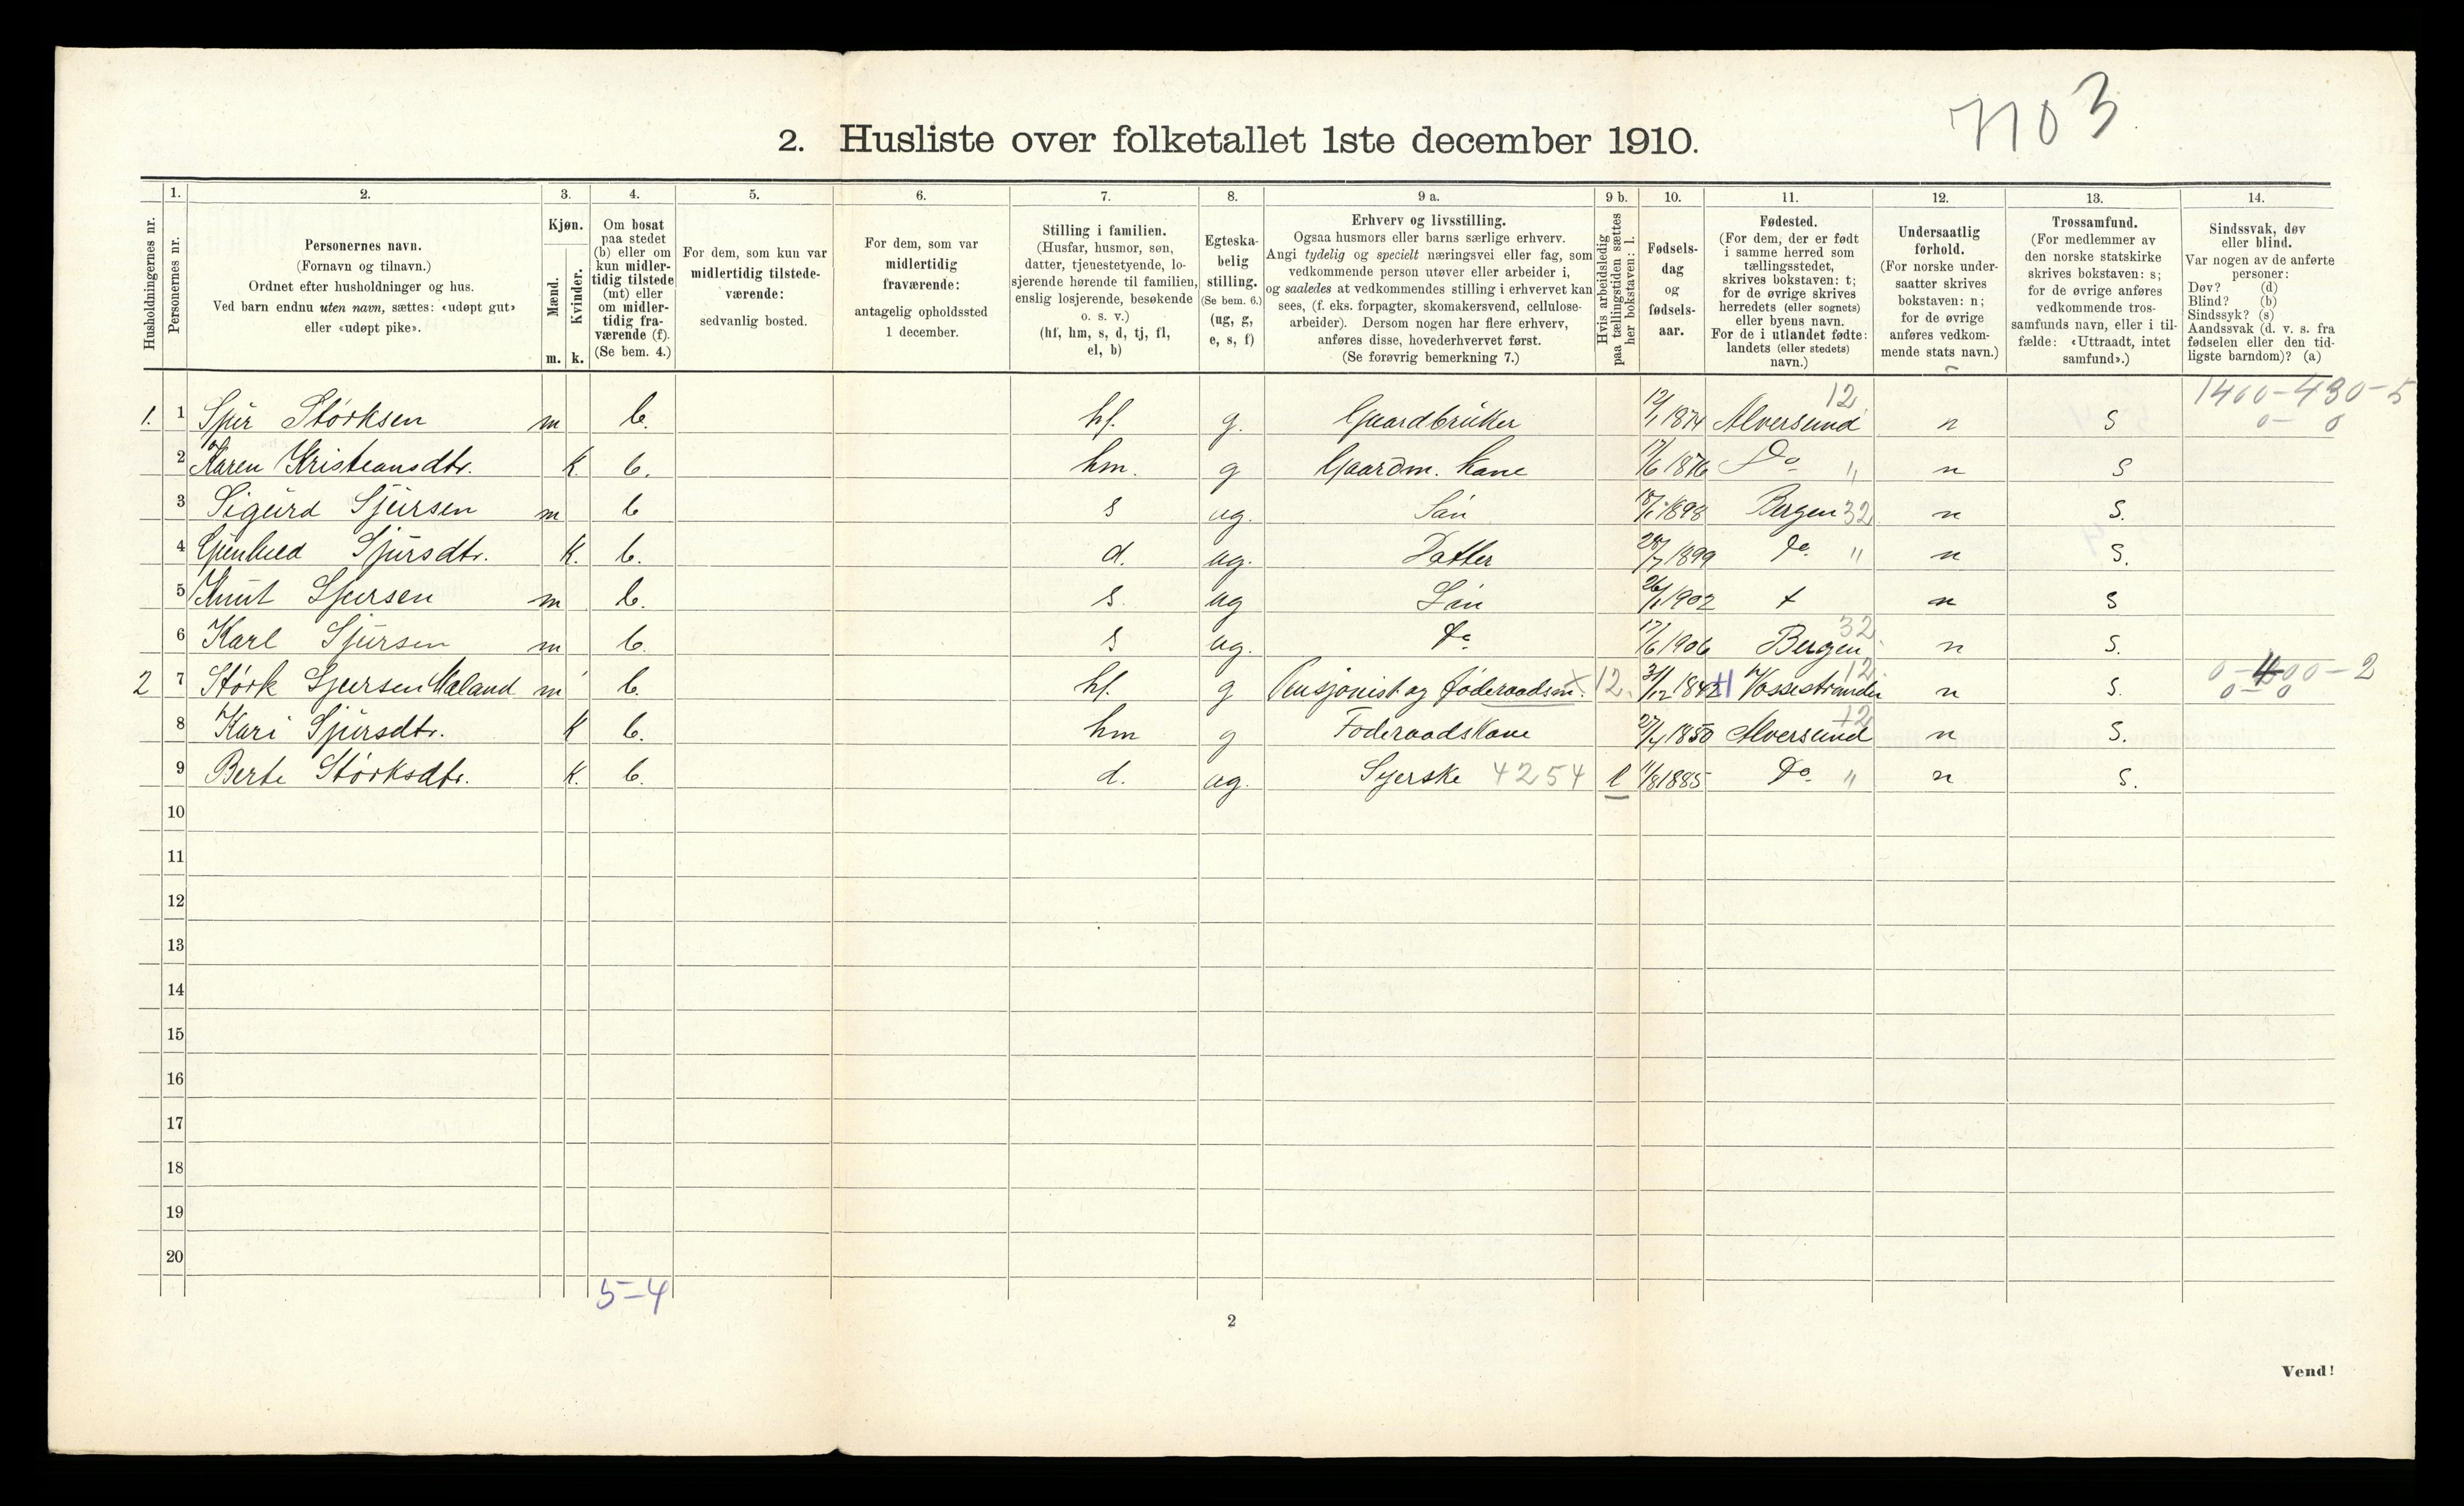 7703
2. Husliste over folketallet 1ste december 1910.
Husholdningernes nr.
1. Personernes nr.
2. Personernes navn.
(Fornavn og tilnavn.)
Ordnet efter husholdninger og hus.
Ved barn endnu uten navn, sættes: «udøpt gut»
eller «udøpt pike».
3. Kjøn.
Mænd. m.
Kvinder. k.
4. Om bosat
paa stedet
(b) eller om
kun midler-
tidig tilstede
(mt) eller
om midler-
tidig fra-
værende (f).
(Se bem. 4.)
5. For dem, som kun var
midlertidig tilstede-
værende:
sedvanlig bosted.
6. For dem, som var
midlertidig
fraværende:
antagelig opholdssted
1 december.
7. Stilling i familien.
(Husfar, husmor, søn,
datter, tjenestetyende, lo-
sjerende hørende til familien,
enslig losjerende, besøkende
o. s. v.)
(hf, hm, s, d, tj, fl,
el, b)
8. Egteska-
belig
stilling.
(Se bem. 6.)
(ug, g,
e, s, f)
9 a. Erhverv og livsstilling.
Ogsaa husmors eller barns særlige erhverv.
Angi tydelig og specielt næringsvei eller fag, som
vedkommende person utøver eller arbeider i,
og saaledes at vedkommendes stilling i erhvervet kan
sees, (f. eks. forpagter, skomakersvend, cellulose-
arbeider). Dersom nogen har flere erhverv,
anføres disse, hovederhvervet først.
(Se forøvrig bemerkning 7.)
9 b. Hvis arbeidsledig
paa tællingstiden sættes
her bokstaven: l.
10. Fødsels-
dag
og
fødsels-
aar.
11. Fødested.
(For dem, der er født
i samme herred som
tællingsstedet,
skrives bokstaven: t;
for de øvrige skrives
herredets (eller sognets)
eller byens navn.
For de i utlandet fødte:
landets (eller stedets)
navn.)
12. Undersaatlig
forhold.
(For norske under-
saatter skrives
bokstaven: n;
for de øvrige
anføres vedkom-
mende stats navn.)
13. Trossamfund.
(For medlemmer av
den norske statskirke
skrives bokstaven: s;
for de øvrige anføres
vedkommende tros-
samfunds navn, eller i til-
fælde: «Uttraadt, intet
samfund».)
14. Sindssvak, døv
eller blind.
Var nogen av de anførte
personer:
Døv? (d)
Blind? (b)
Sindssyk? (s)
Aandssvak (d. v. s. fra
fødselen eller den tid-
ligste barndom)? (a)
12 1400-430-5
1. 1 Sjur Størksen m b. hf. g. Gaardbruker 12/1 1874 Alversund n s 0- 0
2 Karen Kristiansdtr. K b. hm. g Gaardm. Kone 17/6 1876 Do " n s
3 Sigurd Sjursen m b s ug. Søn 18/1 1898 Bergen 32 n s.
4 Gunhild Sjursdtr. K. b. d. ug. Datter 28/7 1899 Do " n s.
5 Knut Sjursen m b. s. ug Søn 26/1 1902 t n s
6 Karl Sjursen m b. s ug. Do 17/6 1906 Bergen 32 n s.
2 7 Størk Sjursen Mæland m b. hf. g Pensjonist og føderaadsm. x 12. 31/12 1842 Vossestranden 12 n s. 0-400-2
0-0
8 Kari Sjursdtr. K b. hm g Føderaadskone 27/4 1850 Alversund 12 n s.
9 Berte Størksdtr. K. b. d. ug. Syerske 4254 l 11/8 1885 Do " n s.
10
11
12
13
14
15
16
17
18
19
20
5-4
2
Vend!